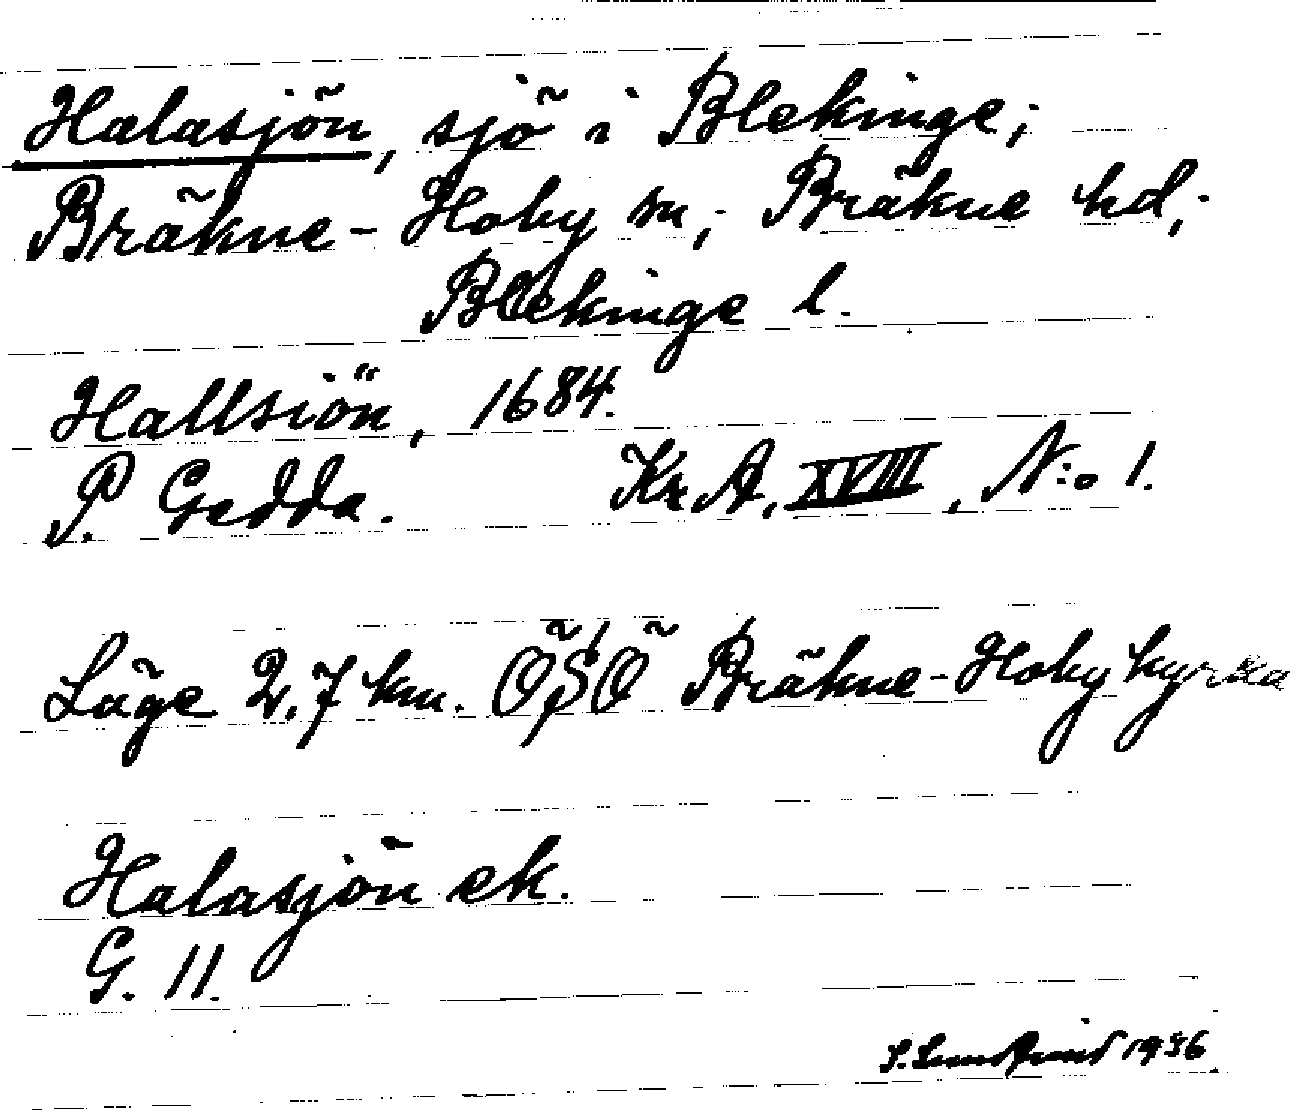 Halasjön, sjö i Blekinge;
Bräkne-Hoby sn; Bräkne hd;
Blekinge l.
Hallsiön, 1684.
P. Gedda. Kr.A, XVIII, N:o 1.
Läge 2,7 km. ÖSÖ Bräkne-Hoby kyrka
Halasjön ek.
G. 11.
1936